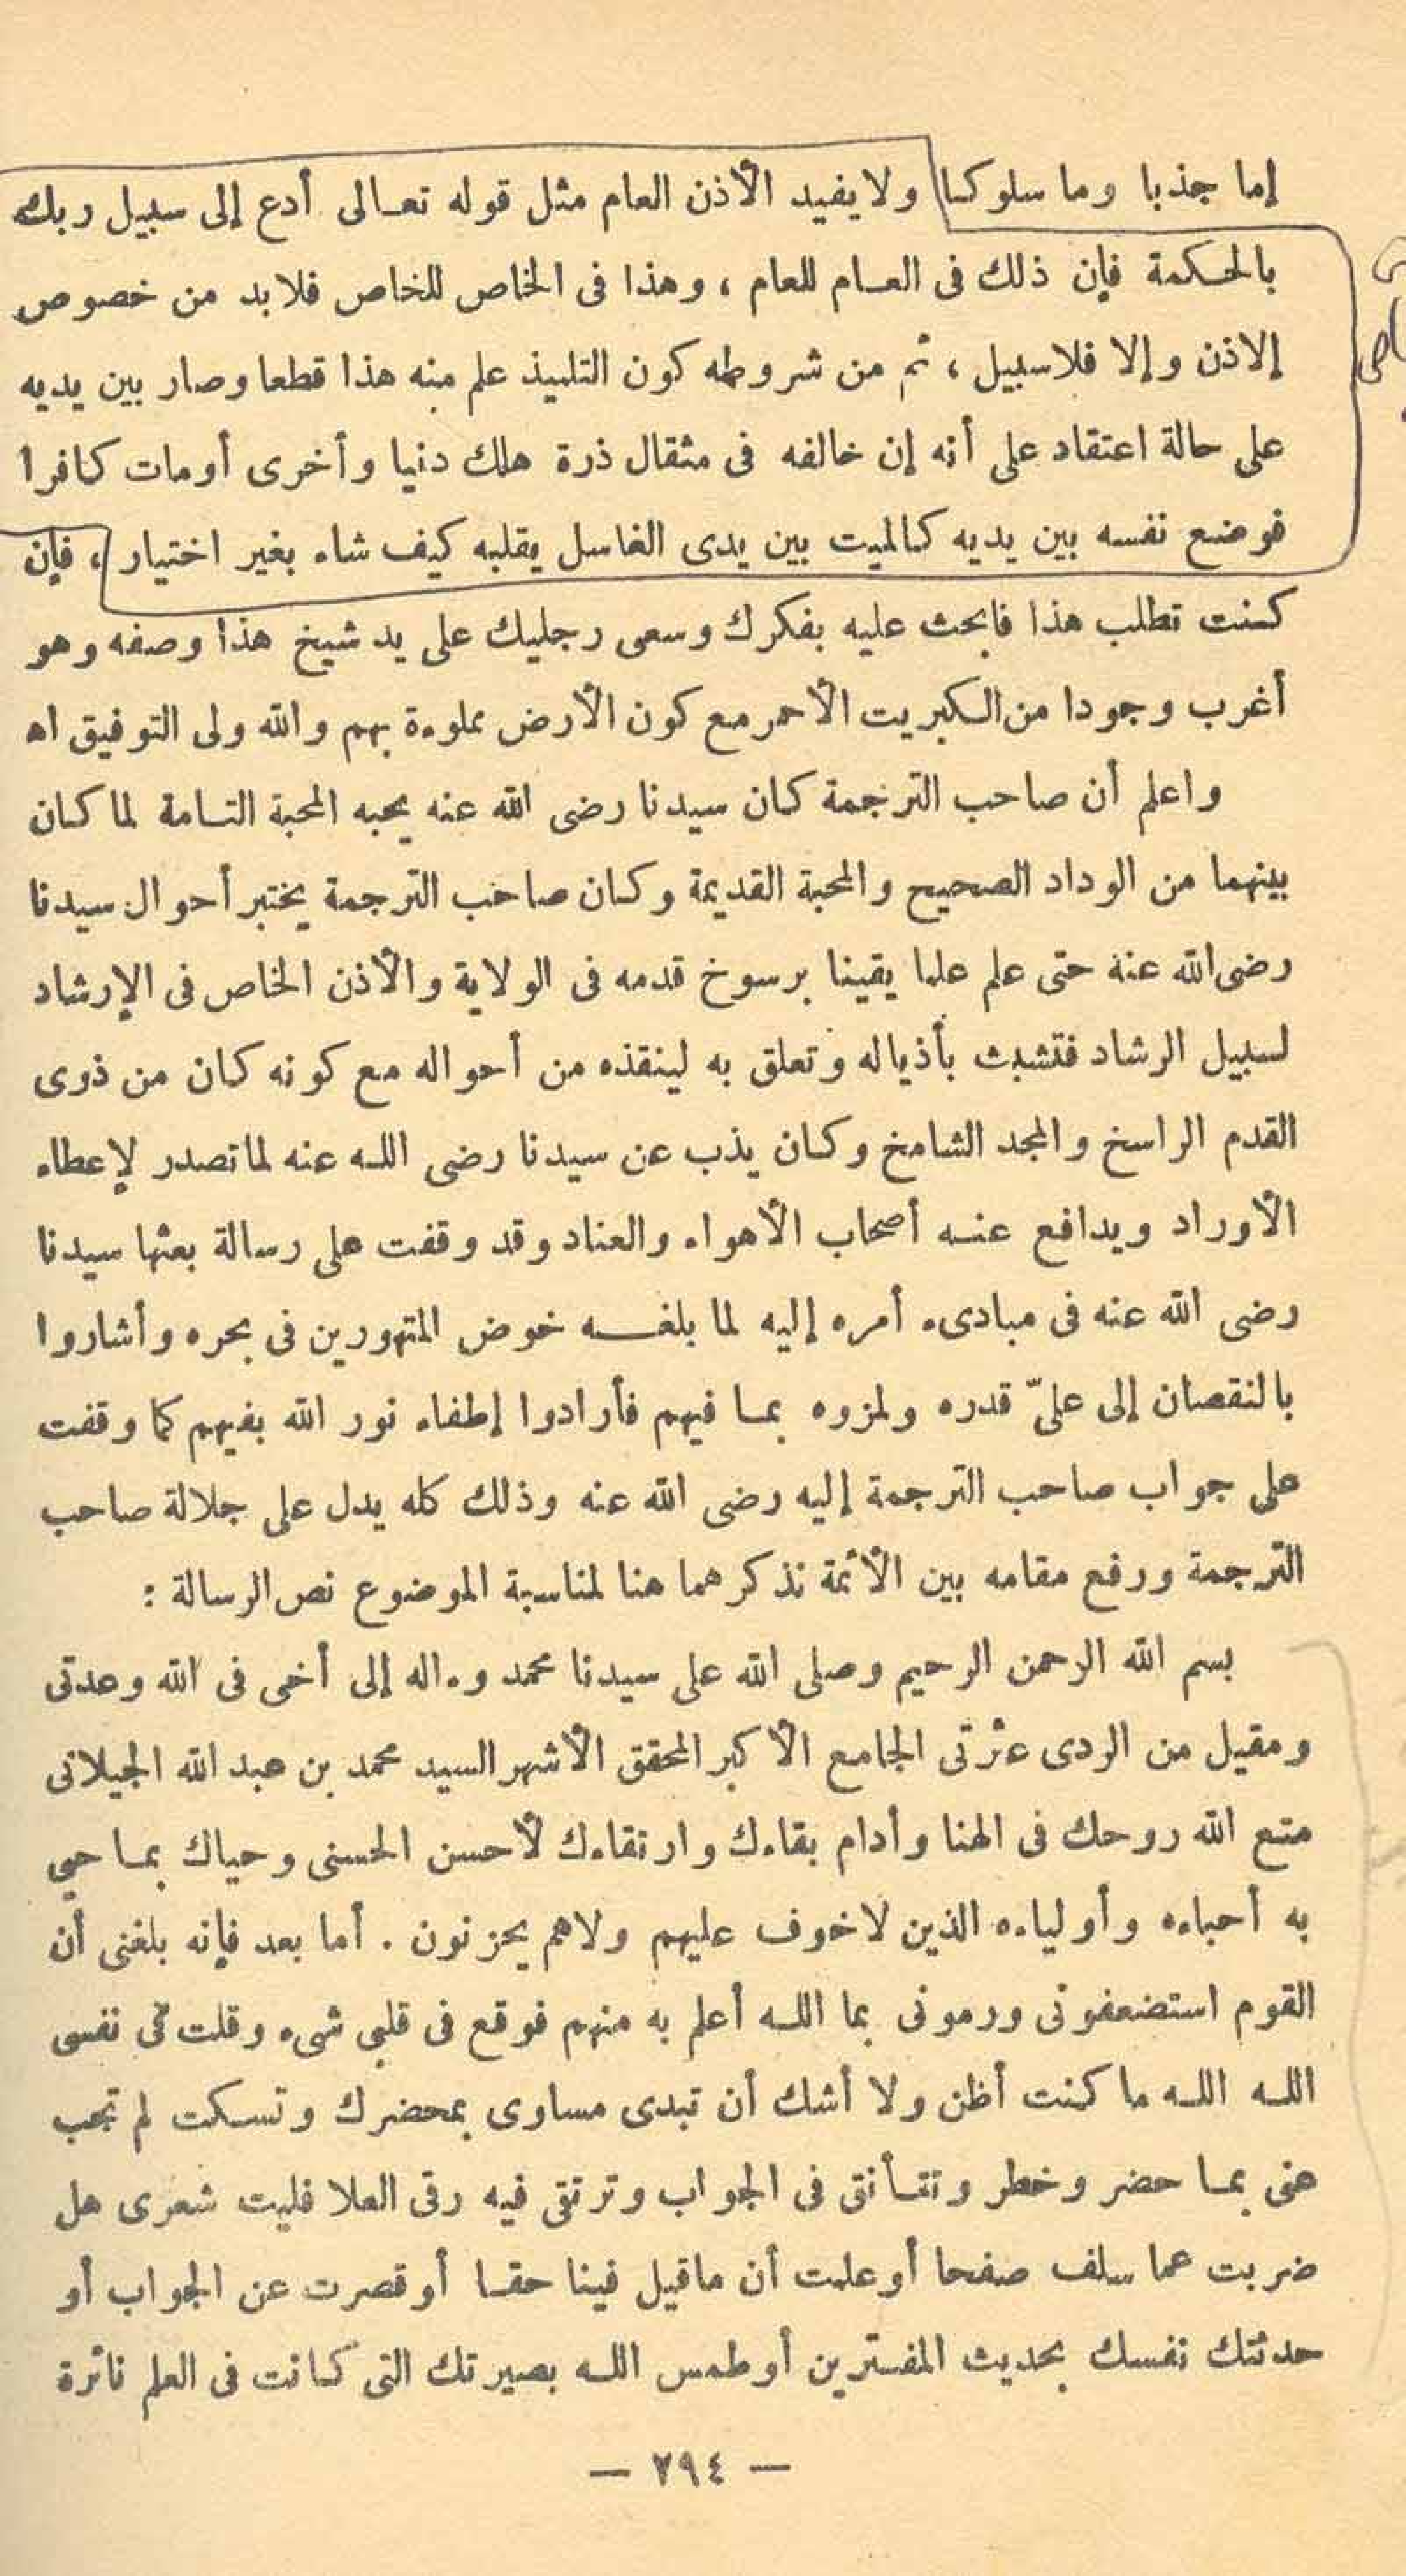 إما جذبا وما سلوكا ولا يفيد الأذن العام مثل قوله تعالى أدع إلى سبيل ربك
بالحكمة فإن ذلك فى العام للعام ، وهذا فى الخاص للخاص فلابد من خصوص
إلاذن وإلا فلاسبيل ، ثم من شروطه كون التلميذ علم منه هذا قطعا وصار بين يديه
على حالة اعتقاد على أنه إن خالفه فى مثقال ذرة هلك دنيا وأخرى أومات كافرا
فوضع نفسه بين يديه كالميت بين يدى الغاسل يقلبه كيف شاء بغير اختيار ، فإن
كنت تطلب هذا فابحث عليه بفكرك وسعى رجليك على يد شيخ هذا وصفه وهو
أغرب وجودا من الكبريت الأحمر مع كون الأرض مملوءة بهم والله ولى التوفيق اه
واعلم أن صاحب الترجمة كان سيدنا رضى الله عنه يحبه المحبة التامة لما كان
بينهما من الوداد الصحيح والمحبة القديمة وكان صاحب الترجمة يختبر أحوال سيدنا
رضى الله عنه حتى علم علما يقينا برسوخ قدمه فى الولاية والأذن الخاص فى الإرشاد
لسبيل الرشاد فتشبث بأذياله وتعلق به لينقذه من أحواله مع كونه كان من ذوى
القدم الراسخ والمجد الشامخ وكان يذب عن سيدنا رضى الله عنه لما تصدر لإعطاء
الأوراد ويدافع عنه أصحاب الأهواء والعناد وقد وقفت على رسالة بعثها سيدنا
رضى الله عنه فى مبادىء أمره إليه لما بلغه خوض المتهورين فى بحره وأشاروا
بالنقصان إلى علىّ قدره ولمزوه بما فيهم فأرادوا إطفاء نور الله بفيهم كما وقفت
على جواب صاحب الترجمة إليه رضى الله عنه وذلك كله يدل على جلالة صاحب
الترجمة ورفع مقامه بين الأئمة نذكرهما هنا لمناسبة الموضوع نص الرسالة :
بسم الله الرحمن الرحيم وصلى الله على سيدنا محمد وءاله إلى أخى فى الله وعدتى
ومقيل من الردى عثرتى الجامع الأكبر المحقق الأشهر السيد محمد بن عبد الله الجيلانى
متع الله روحك فى الهنا وأدام بقاءك وارتقاءك لأحسن الحسنى وحياك بما حيى
به أحباءه وأولياءه الذين لاخوف عليهم ولاهم يحزنون . أما بعد فإنه بلغنى أن
القوم استضعفونى ورمونى بما الله أعلم به منهم فوقع فى قلبى شىء وقلت فى نفسى
الله الله ما كنت أظن ولا أشك أن تبدى مساوى بمحضرك وتسكت لم تجب
عنى بما حضر وخطر وتتأنق فى الجواب وترتقى فيه رقى العلا فليت شعرى هل
ضربت عما سلف صفحا أو علمت أن ماقيل فينا حقا أو قصرت عن الجواب أو
حدثتك نفسك بحديث المفسترين أوطمس الله بصيرتك التى كانت فى العلم نائرة
— ٢٩٤ —